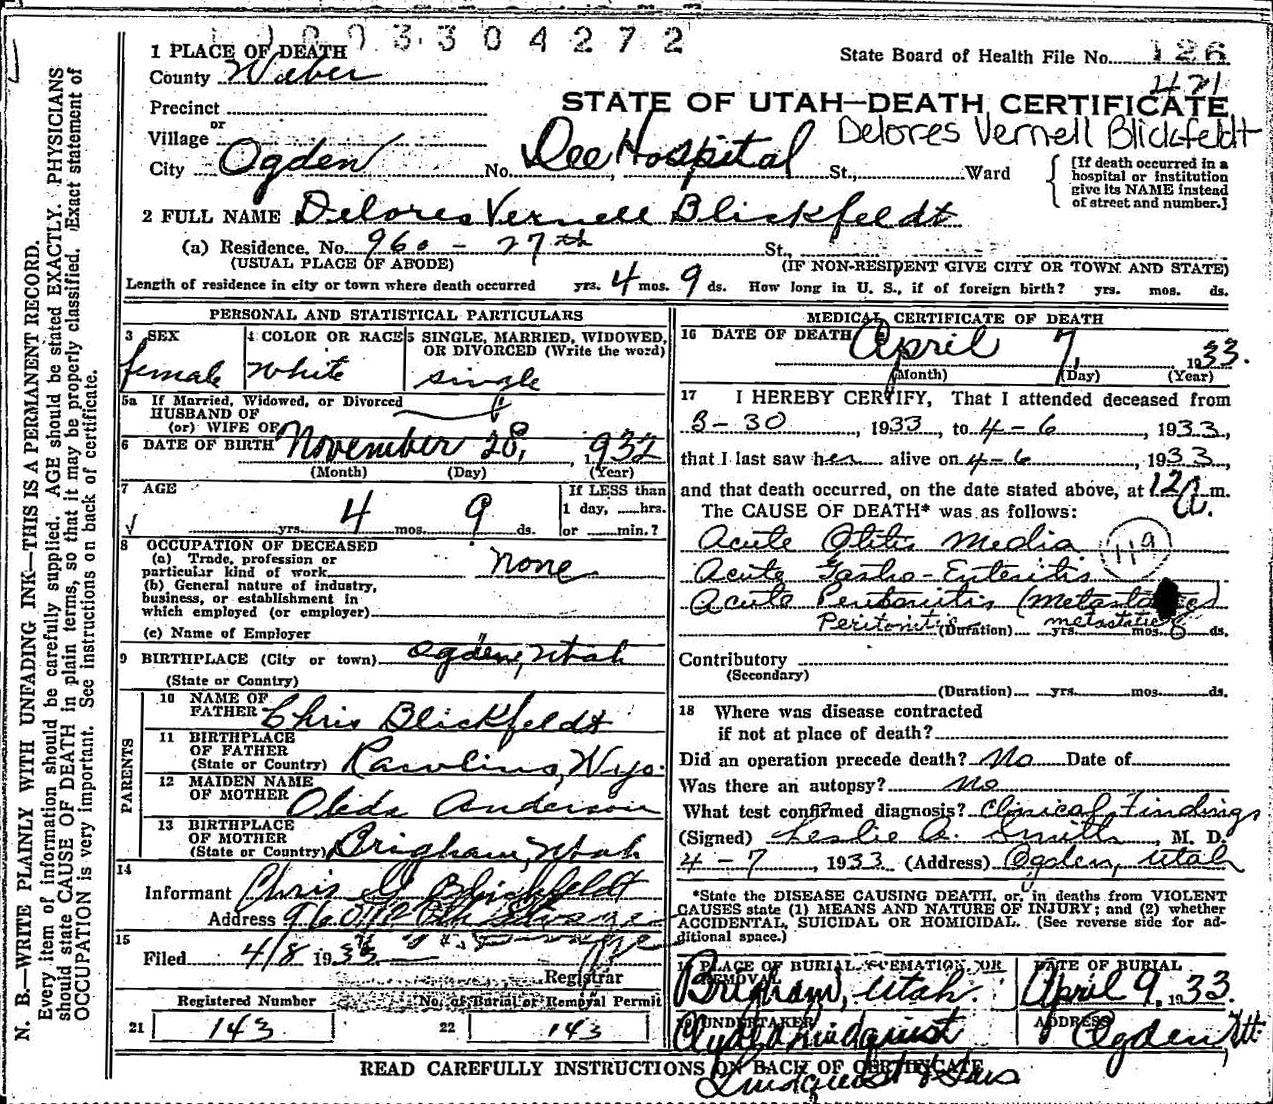 1003304272
1 PLACE OF DEATH
State Board of Health File No. 126
County Weber
421
Precinct
STATE OF UTAH—DEATH CERTIFICATE
or
Village
Delores Vernell Blickfeldt
City Ogden No. Dee Hospital St., Ward
[If death occurred in a hospital or institution give its NAME instead of street and number.]
2 FULL NAME Delores Vernell Blickfeldt
(a) Residence. No. 960 - 27th St.,
(USUAL PLACE OF ABODE) (IF NON-RESIDENT GIVE CITY OR TOWN AND STATE)
Length of residence in city or town where death occurred yrs. 4 mos. 9 ds. How long in U. S., if of foreign birth? yrs. mos. ds.
PERSONAL AND STATISTICAL PARTICULARS
3 SEX
female
4 COLOR OR RACE
White
5 SINGLE, MARRIED, WIDOWED, OR DIVORCED (Write the word)
single
5a If Married, Widowed, or Divorced
HUSBAND OF
(or) WIFE OF
6 DATE OF BIRTH November 28, 1932
(Month) (Day) (Year)
7 AGE
yrs. 4 mos. 9 ds.
If LESS than
1 day, hrs.
or min.?
8 OCCUPATION OF DECEASED
(a) Trade, profession or
particular kind of work none
(b) General nature of industry,
business, or establishment in
which employed (or employer)
(c) Name of Employer
9 BIRTHPLACE (City or town) Ogden, Utah
(State or Country)
PARENTS
10 NAME OF
FATHER Chris Blickfeldt
11 BIRTHPLACE
OF FATHER
(State or Country) Rawlins, Wyo.
12 MAIDEN NAME
OF MOTHER Anderson
13 BIRTHPLACE
OF MOTHER
(State or Country) Brigham, Utah
14
Informant Chris Blickfeldt
Address 960
15
Filed 4/8 1933
Registrar
Registered Number
No. of Burial or Removal Permit
21 143
22 143
MEDICAL CERTIFICATE OF DEATH
16 DATE OF DEATH April 7, 1933.
(Month) (Day) (Year)
17 I HEREBY CERTIFY, That I attended deceased from
3-30, 1933, to 4-6, 1933,
that I last saw her alive on 4-6, 1933,
and that death occurred, on the date stated above, at 12 a. m.
The CAUSE OF DEATH* was as follows:
Acute Otitis Media
119
Acute Gastro-Enteritis
Acute Peritonitis
Peritonitis metastatic
(Duration) yrs. mos. 8 ds.
Contributory
(Secondary)
(Duration) yrs. mos. ds.
18 Where was disease contracted
if not at place of death?
Did an operation precede death? No Date of
Was there an autopsy? No
What test confirmed diagnosis? Clinical Findings
(Signed) Leslie A. Smith, M. D.
4-7, 1933 (Address) Ogden, Utah
*State the DISEASE CAUSING DEATH, or, in deaths from VIOLENT
CAUSES state (1) MEANS AND NATURE OF INJURY; and (2) whether
ACCIDENTAL, SUICIDAL OR HOMICIDAL. (See reverse side for ad-
ditional space.)
PLACE OF BURIAL, CREMATION, OR
REMOVAL
Brigham, Utah.
DATE OF BURIAL
April 9, 1933.
UNDERTAKER
Lindquist
Lindquist & Sons
ADDRESS
Ogden, Ut
READ CAREFULLY INSTRUCTIONS ON BACK OF CERTIFICATE
N. B.—WRITE PLAINLY WITH UNFADING INK—THIS IS A PERMANENT RECORD.
Every item of information should be carefully supplied. AGE should be stated EXACTLY. PHYSICIANS
should state CAUSE OF DEATH in plain terms, so that it may be properly classified. Exact statement of
OCCUPATION is very important. See instructions on back of certificate.